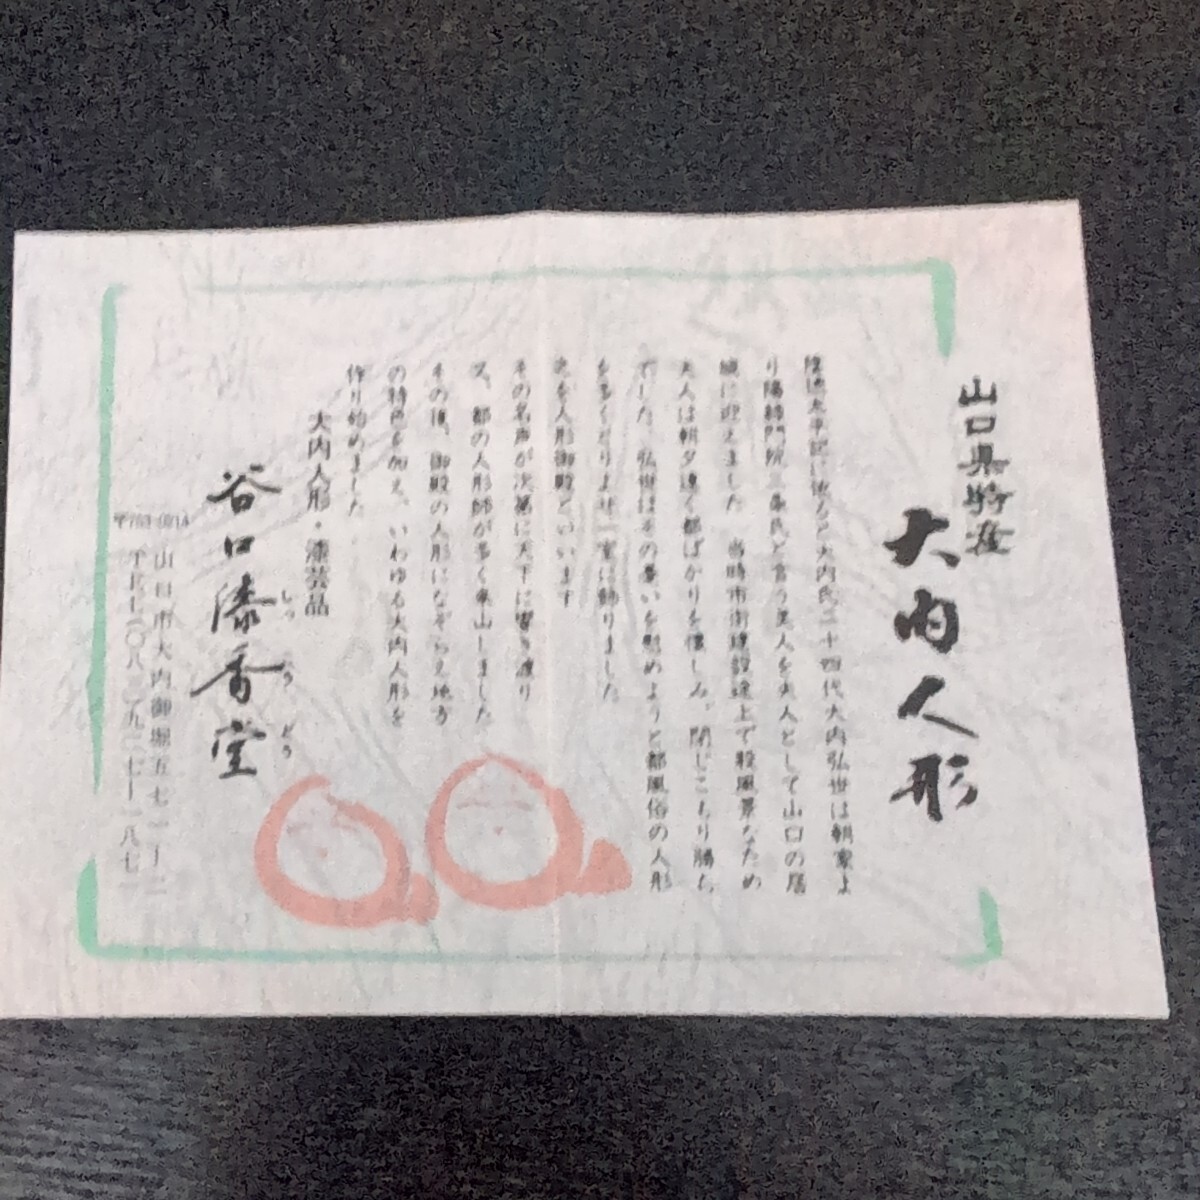 山口県特産
大内人形
陰徳太平記に依ると大内氏二十四代大内弘世は朝家よ
り陽録門院三条氏と言う美人を夫人として山口の居
城に迎えました 当時市街建設途上で殺風景なため
夫人は朝夕遠く都ばかりを懐しみ、閉じこもり勝ち
でした、弘世はその憂いを慰めようと都風俗の人形
を多くとりよせ一室に飾りました
之を人形御殿といいます
その名声が次第に天下に響き渡り
又、都の人形師が多く来山しました
その後、御殿の人形になぞらえ地方
の特色を加え、いわゆる大内人形を
作り始めました
大内人形・漆芸品
谷口漆香堂
しっ こう どう
山口市大内御堀五七一ー二